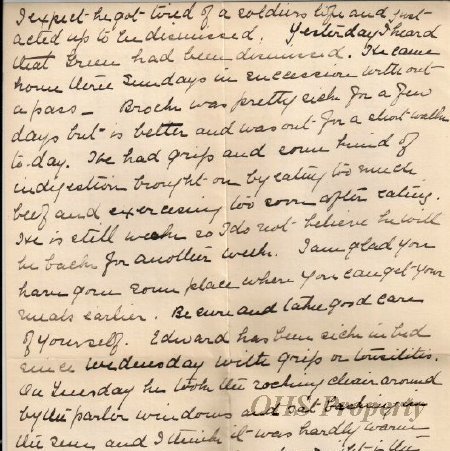 I expect he got tired of a soldiers life and just
acted up to be dismissed. Yesterday I heard
that Green had been dismissed. He came
home three Sundays in succession without
a pass — Brock was pretty sick for a few
days but is better and was out for a short walk
to-day. He had grip and some kind of
indigestion brought on by eating too much
beef and exercising too soon after eating.
He is still weak so I do not believe he will
be back for another week. I am glad you
have gone some place where you can get your
meals earlier. Be sure and take good care
of yourself. Edward has been sick in bed
since Wednesday with grip or tonsilitis.
On Tuesday he took the rocking chair around
by the parlor windows and sat in
the sun and I think it was hardly warm
OHS Property